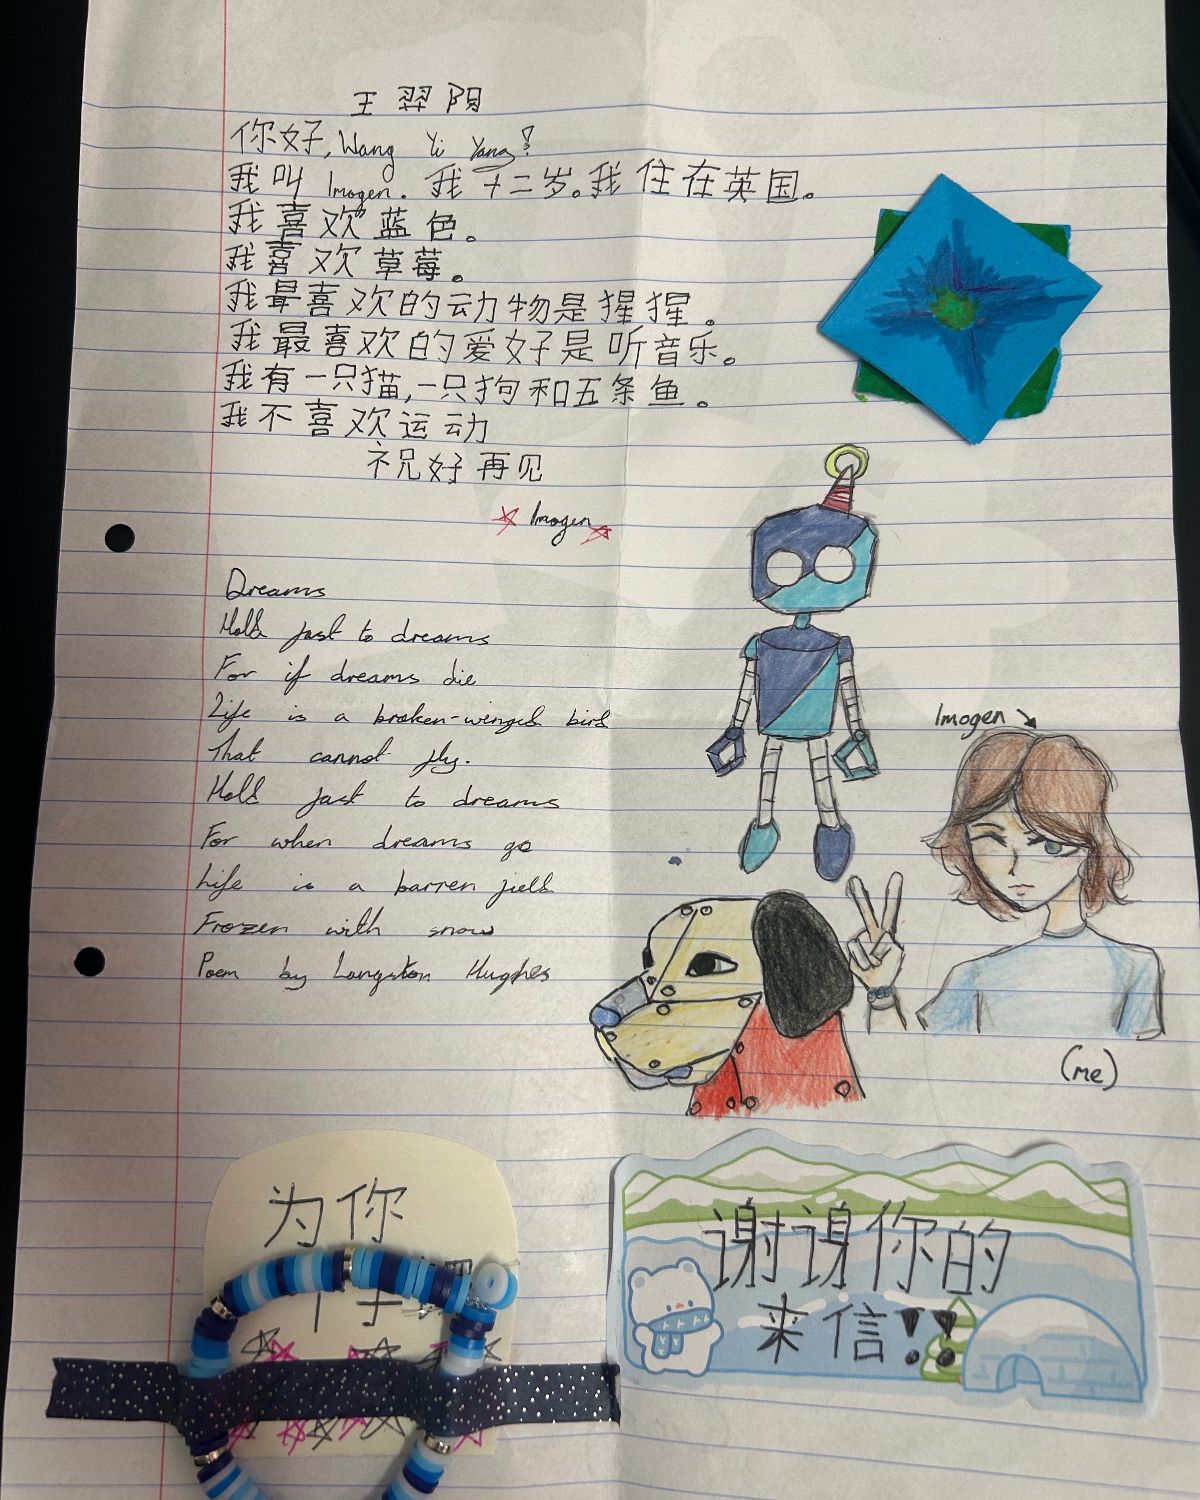 王羿阳
你好, Wang Yi Yang!
我叫 Imogen. 我十二岁。我住在英国。
我喜欢蓝色。
我喜欢草莓。
我最喜欢的动物是猩猩。
我最喜欢的爱好是听音乐。
我有一只猫,一只狗和五条鱼。
我不喜欢运动
祝好再见
Imogen
Dreams
Hold fast to dreams
For if dreams die
Life is a broken-winged bird
That cannot fly.
Hold fast to dreams
For when dreams go
Life is a barren field
Frozen with snow
Poem by Langston Hughes
Imogen
(me)
为你
谢谢你的
来信!!